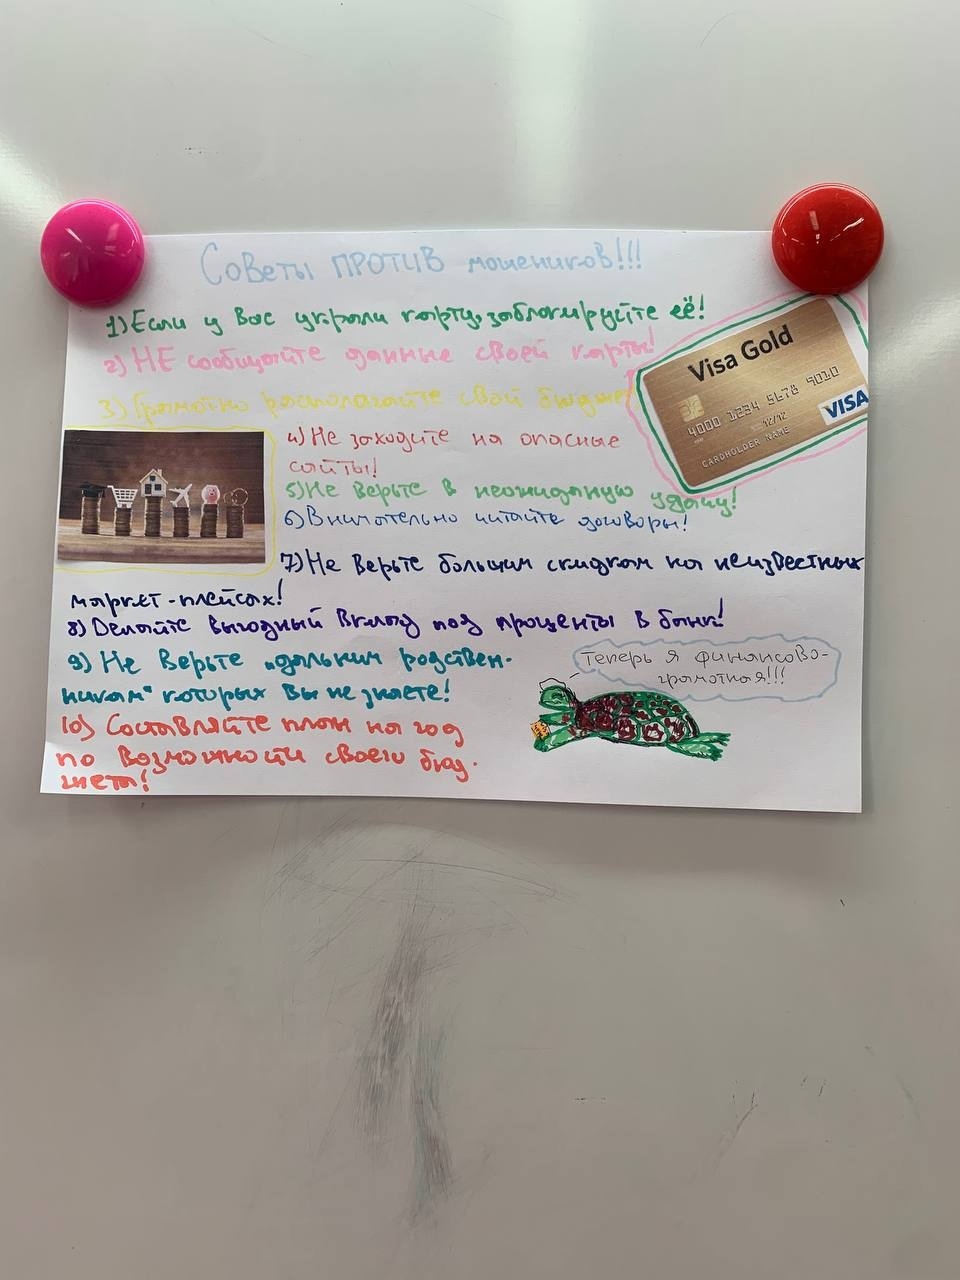 Советы ПРОТИВ мошеников!!!
1) Если у Вас украли карту, заблокируйте её!
2) НЕ сообщайте данные своей карты!
3) Грамотно располагайте свой бюджет
Visa Gold
4000 1234 5678 9010
12/12
CARDHOLDER NAME
VISA
4) Не заходите на опасные
сайты!
5) Не верьте в неожиданую удачу!
6) Внимательно читайте договоры!
7) Не верьте большим скидкам на неизвестных
маркет-плейсах!
8) Делайте выгодный вклад под проценты в банк!
9) Не верьте „дальним родствен-
никам“ которых Вы не знаете!
10) Составляйте план на год
по возможности своего бюд-
жета!
Теперь я финансово-
грамотная!!!